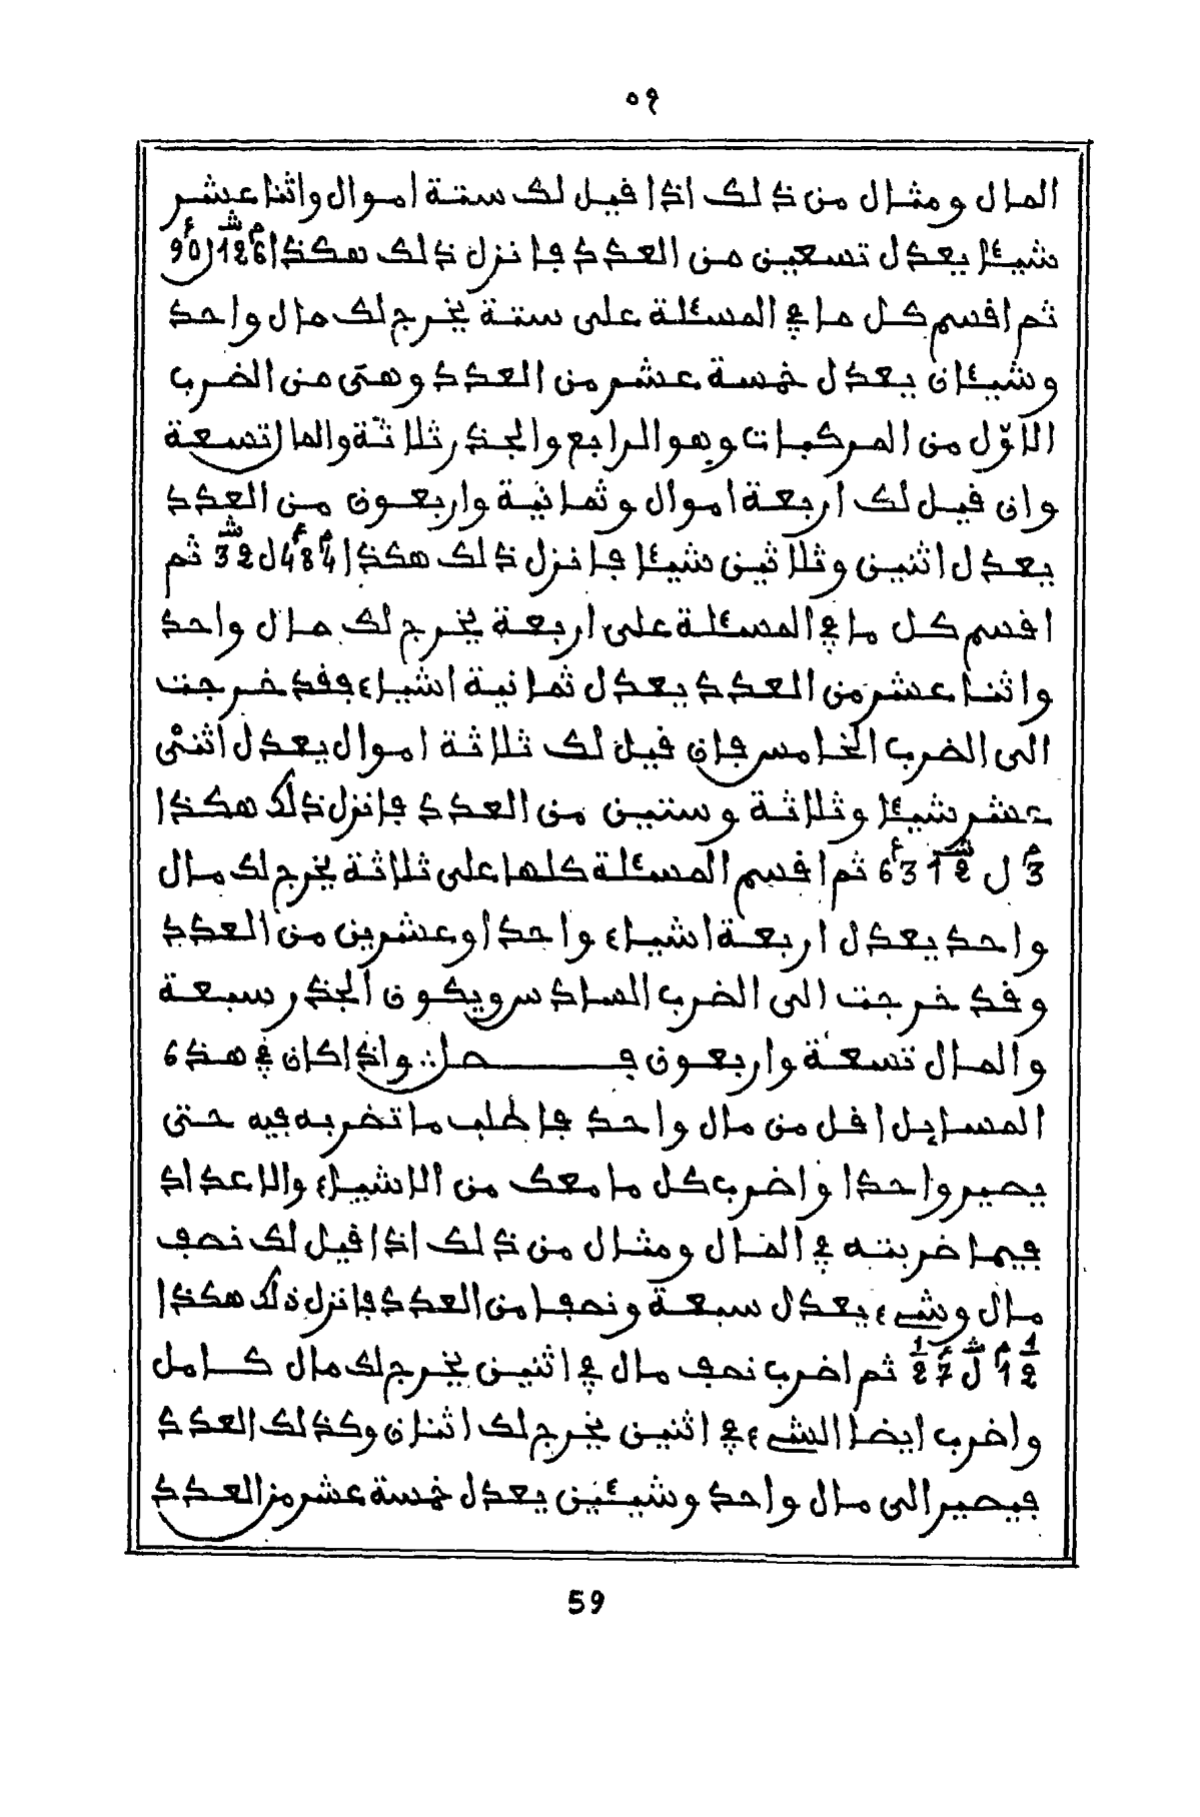 ٥٩
المال ومثال من ذلك اذا قيل لك ستة اموال واثنا عشر
شيئا يعدل تسعين من العدد فانزل ذلك هكذا 6م 12ش ل 90ع
ثم اقسم كل ما في المسئلة على ستة يخرج لك مال واحد
وشيئان يعدل خمسة عشر من العدد وهى من الضرب
الاوّل من المركبات وهو الرابع والجذر ثلاثة والمال تسعة
وان قيل لك اربعة اموال وثمانية واربعون من العدد
يعدل اثنين وثلاثين شيئا فانزل ذلك هكذا 4م 48ع ل 32ش ثم
اقسم كل ما في المسئلة على اربعة يخرج لك مال واحد
واثنا عشر من العدد يعدل ثمانية اشياء فقد خرجت
الى الضرب الخامس فان قيل لك ثلاثة اموال يعدل اثنى
عشر شيئا وثلاثة وستين من العدد فانزل ذلك هكذا
3م ل 12ش 63ع ثم اقسم المسئلة كلها على ثلاثة يخرج لك مال
واحد يعدل اربعة اشياء واحدا وعشرين من العدد
وقد خرجت الى الضرب السادس ويكون الجذر سبعة
والمال تسعة واربعون فصل واذا كان في هذه
المسايل اقل من مال واحد فاطلب ما تضربه فيه حتى
يصير واحدا واضرب كل ما معك من الاشياء والاعداد
فيما ضربته في المال ومثال من ذلك اذا قيل لك نصف
مال وشىء يعدل سبعة ونصفا من العدد فانزل ذلك هكذا
1/2م 1ش ل 7ع 1/2 ثم اضرب نصف مال في اثنين يخرج لك مال كامل
واضرب ايضا الشىء في اثنين يخرج لك اثنان وكذلك العدد
فيصير الى مال واحد وشيئين يعدل خمسة عشر من العدد
59